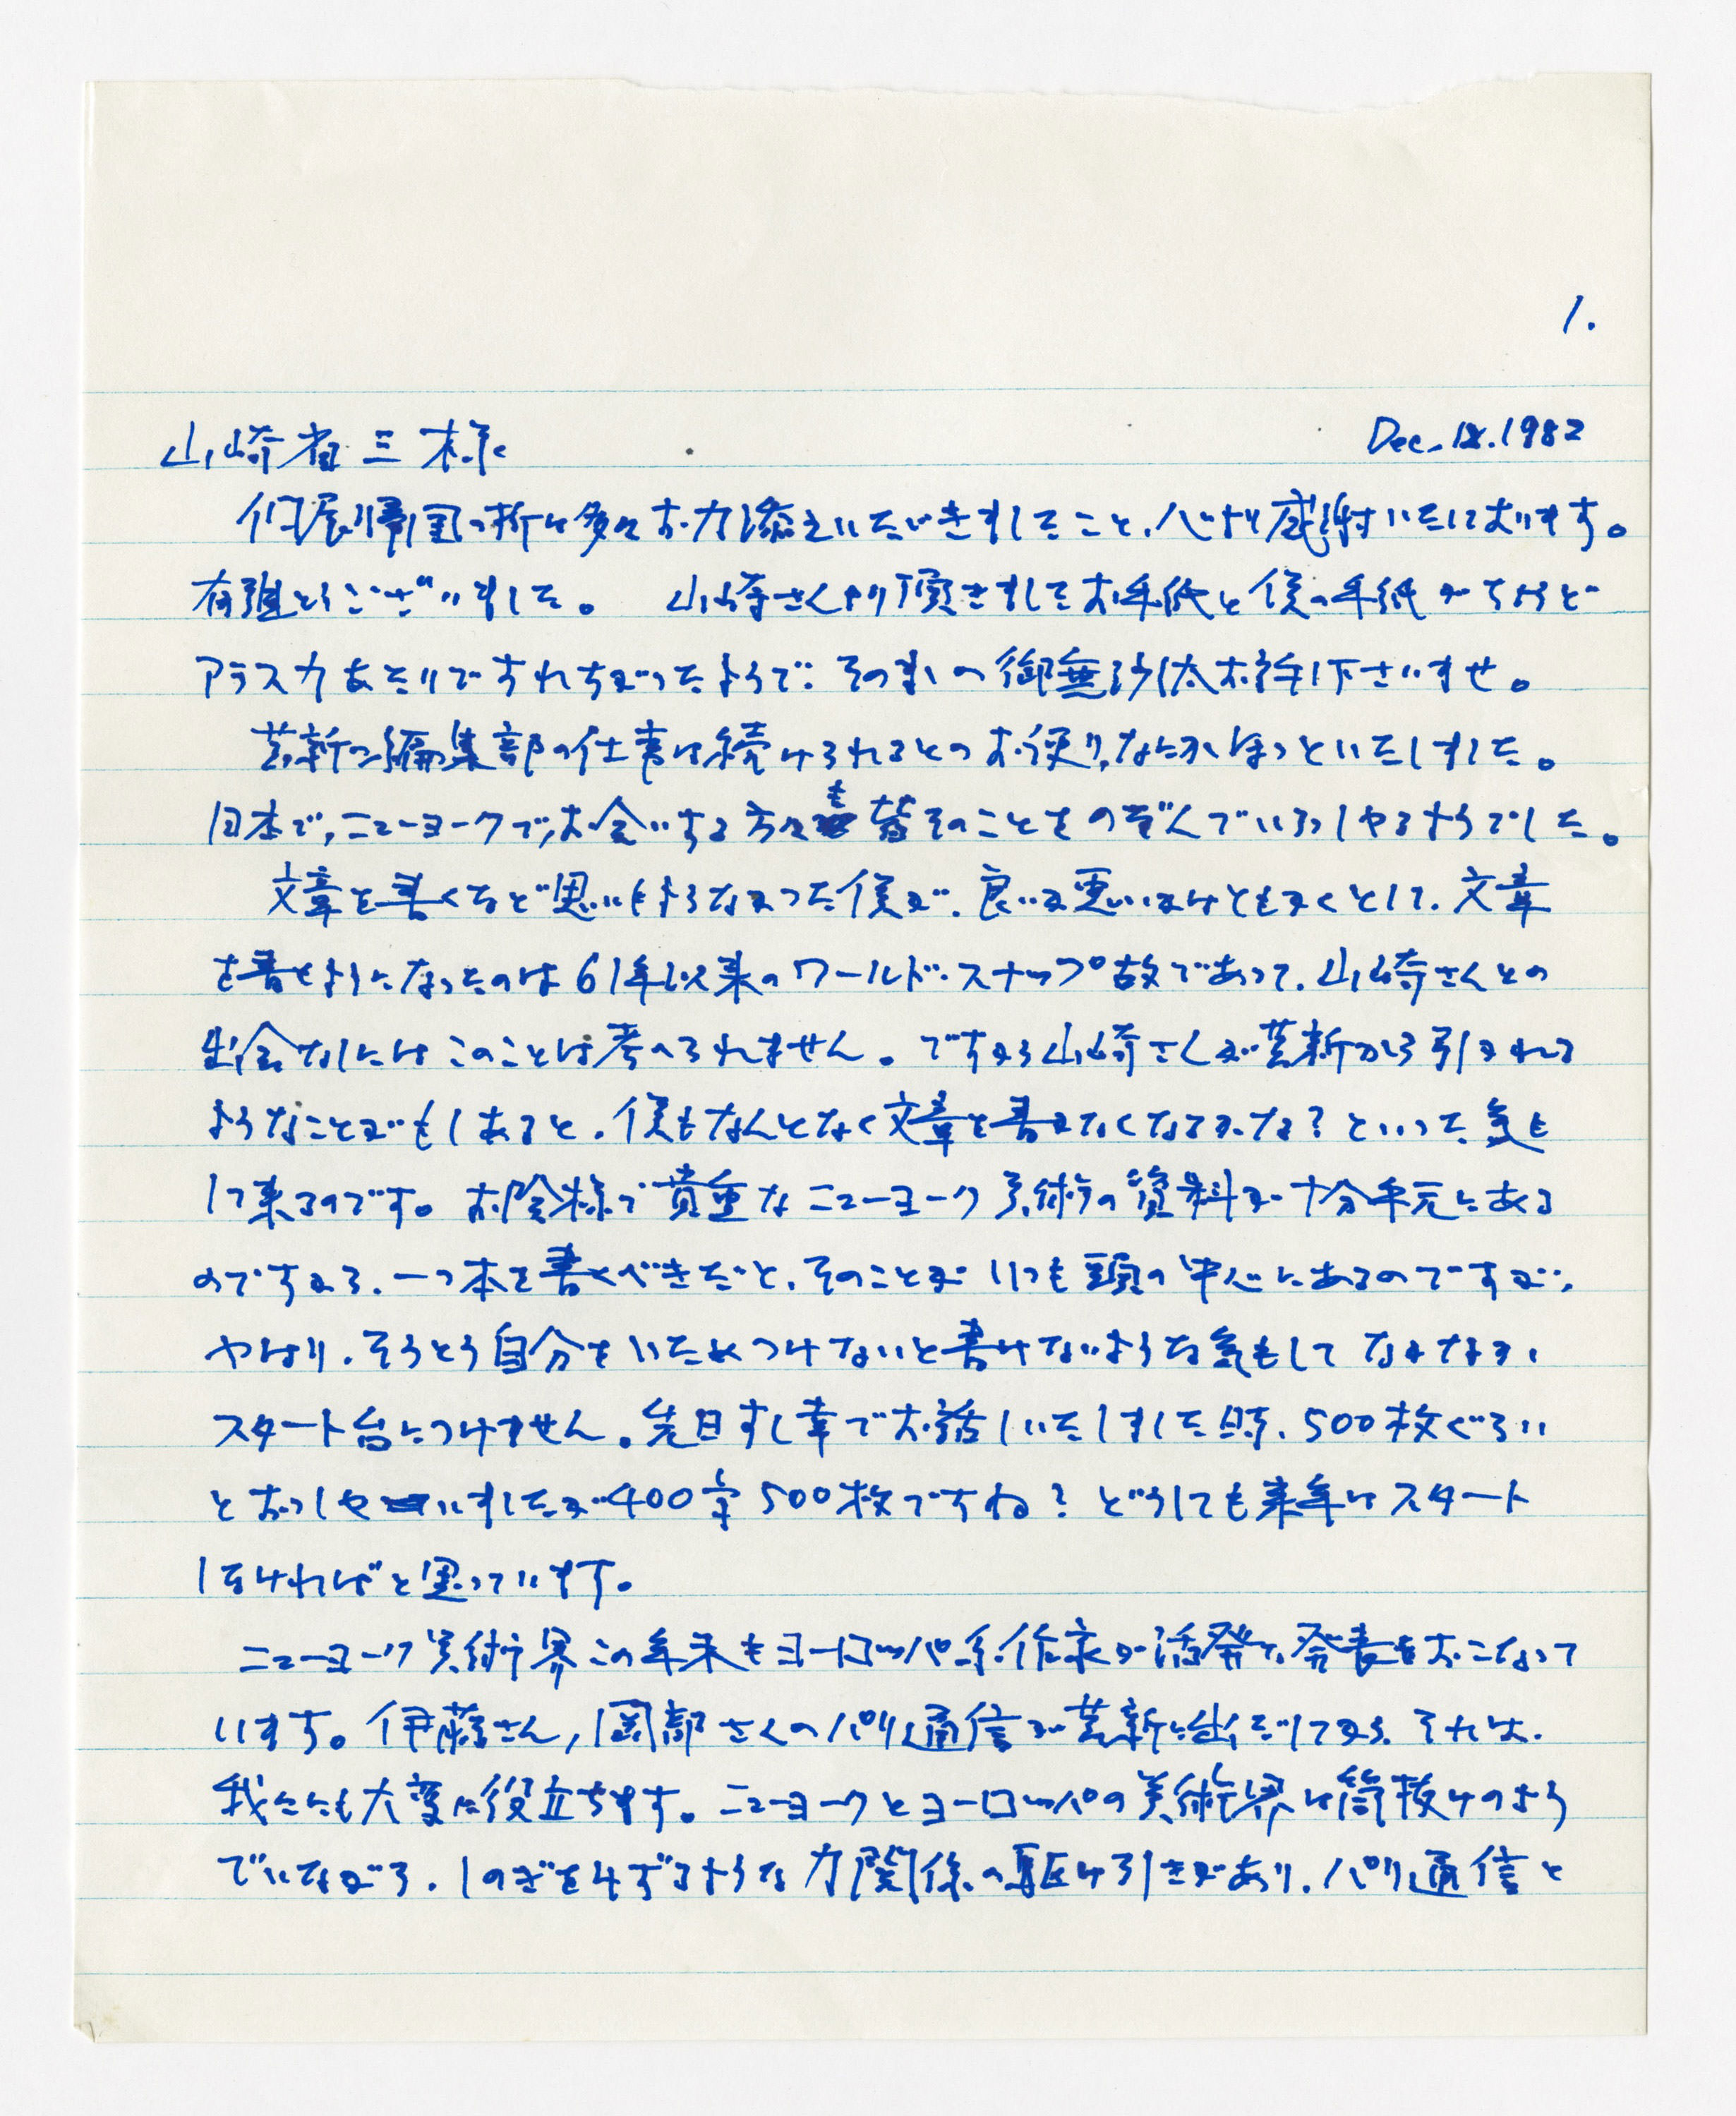 1.
山崎省三様
Dec. 18. 1982
個展帰国の折は多々お力添えいただきましたこと、心より感謝いたしております。
有難とうございました。 山崎さんより頂きましたお手紙と僕の手紙がちょうど
アラスカあたりですれちがったようで、そのまゝの御無沙汰お許し下さいませ。
芸新の編集部の仕事は続けられるとのお便り、なにかほっといたしました。
日本で、ニューヨークで、お会いする方々も皆そのことをのぞんでいらっしやるようでした。
文章を書くなど思いもよらなかった僕が、良いか悪いかはともかくとして、文章
を書くようになったのは61年以来のワールド・スナップ故であって、山崎さんとの
出会なしにはこのことは考へられません。ですから山崎さんが芸新から引かれる
ようなことがもしあると、僕もなんとなく文章を書けなくなるかな?といった気も
して来るのです。お陰様で貴重なニューヨーク美術の資料が十分手元にある
のですから、一つ本を書くべきだと、そのことがいつも頭の中心にあるのですが、
やはり、そうとう自分をいためつけないと書けないような気もしてなかなか、
スタート台につけません。先日すし幸でお話しいたしました時、500枚ぐらい
とおっしゃいましたが400字500枚ですね?どうしても来年はスタート
しなければと思っています。
ニューヨーク美術界この年末もヨーロッパ系作家が活発な発表をおこなって
います。伊藤さん,岡部さんのパリ通信が芸新に出だしてから、それは、
我々にも大変に役立ちます。ニューヨークとヨーロッパの美術界は筒抜けのよう
でいながら、しのぎをけずるような力関係の駆け引きがあり、パリ通信と